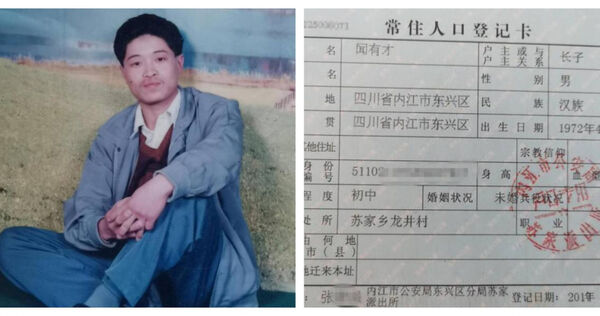 常住人口登记卡
名 闻有才 户主或与户主关系 长子
名 性别 男
地 四川省内江市东兴区 民族 汉族
贯 四川省内江市东兴区 出生日期 1972年4
其他住址 宗教信仰
身份 编号 51102 身高 血
程度 初中 婚姻状况 未婚 兵役状况
处所 苏家乡龙井村 职业
由何地
市(县)
地迁来本址
张 内江市公安局东兴区分局苏家派出所 登记日期:201 年